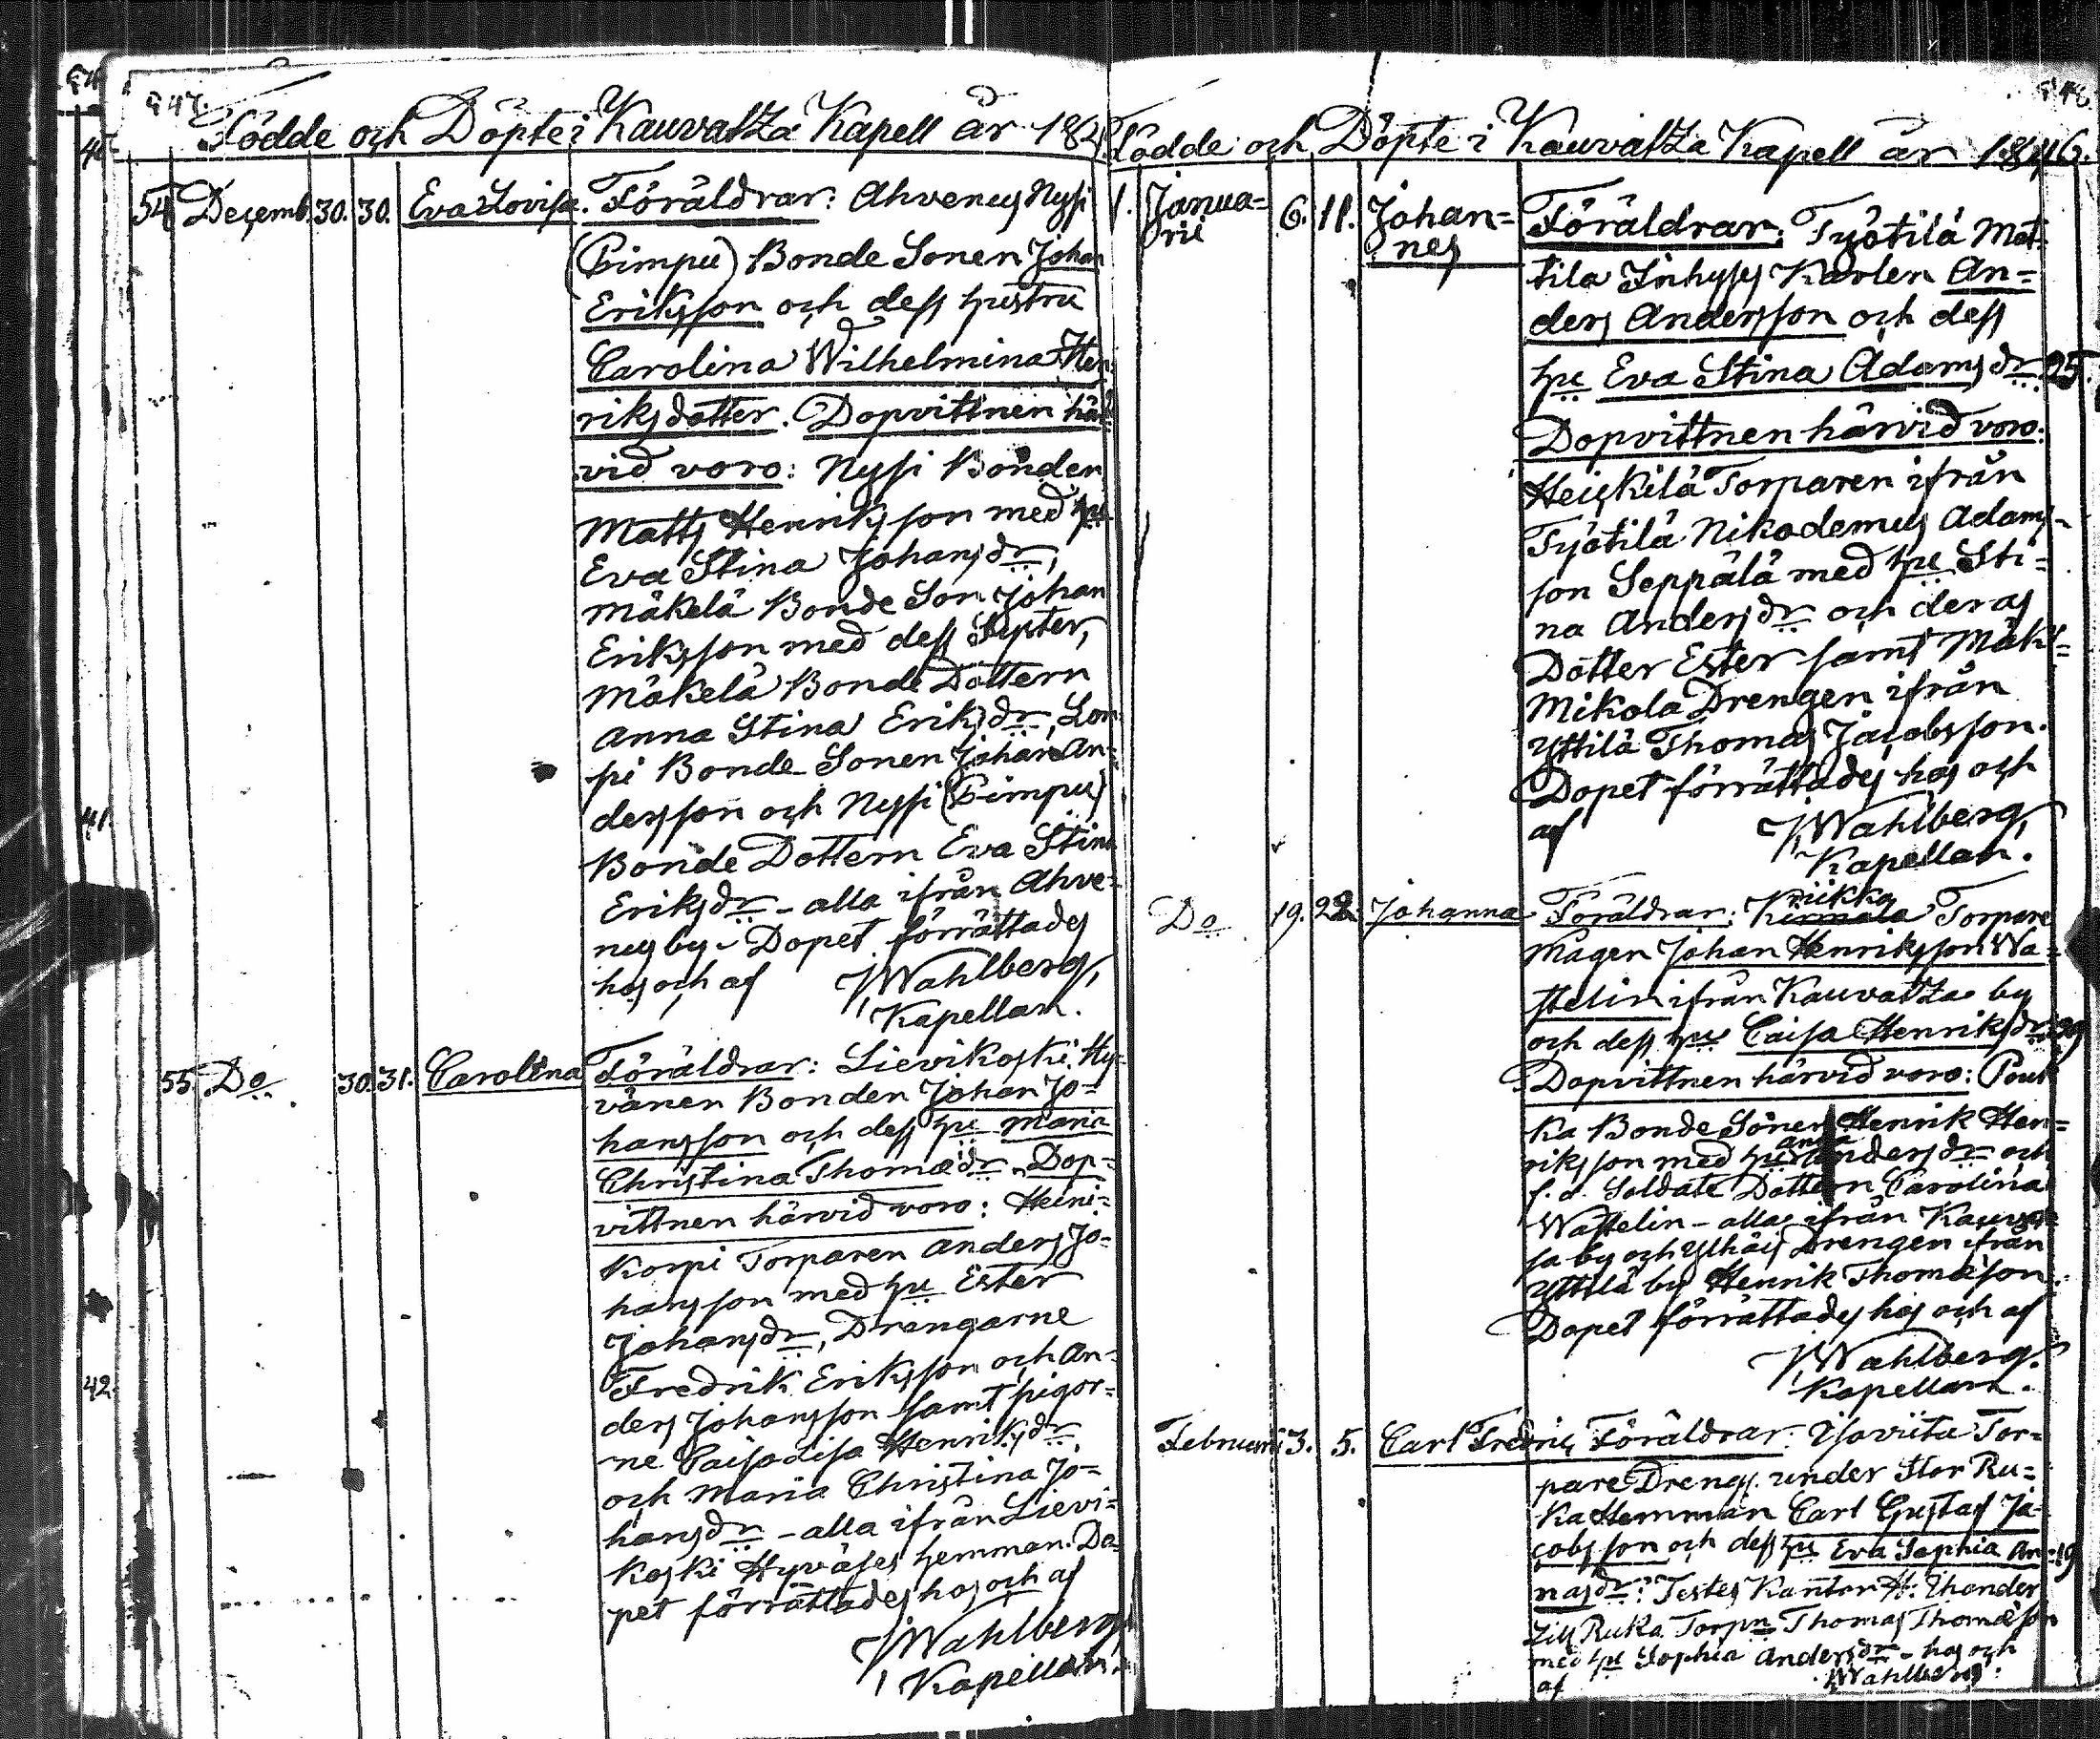 947.
Födde och Döpte i Kauvatza Kapell år 184
54 Decemb. 30. 30. Eva Lovisa. Föräldrar: Ahvenus Nysi
(Pimpu) Bonde Sonen Johan
Eriksson och dess hustru
Carolina Wilhelmina Hen
riksdotter. Dopvittnen här
vid voro: Nysi Bonden
Matts Henriksson med hu
Eva Stina Johansdr,
Mäkelä Bonde Son Johan
Eriksson med dess Syster,
Mäkelä Bonde Dottern
Anna Stina Eriksdr, Lon
pi Bonde Sonen Johan An-
dersson och Nysi (Pimpu)
Bonde Dottern Eva Stina
Eriksdr - alla ifrån Ahve-
nus by - Dopet förrättades
hos och af JWahlberg,
Kapellan.
55. Do 30. 31. Carolina Föräldrar: Lievikoski Hy-
vänen Bonden Johan Jo-
hansson och dess hu Maria
Christina Thomædr. Dop-
vittnen härvid voro: Heini-
korpi Torparen Anders Jo-
hansson med hu Ester
Johansdr, Drengarne
Fredrik Eriksson och An-
ders Johansson samt pigor-
ne Caisa Lisa Henriksdr
och Maria Christina Jo-
hansdr - alla ifrån Lievi-
koski Hyväses hemman. Do-
pet förrättades hos och af
JWahlberg
Kapellan.
40
41
42.
948
Födde och Döpte i Kauvatza Kapell år 1846.
1. Janua-
rii 6. 11. Johan-
nes Föräldrar: Työtilä Mat-
tila Inhyses Karlen An-
ders Andersson och dess
hu Eva Stina Adamsdr 25.
Dopvittnen härvid voro:
Heickilä Torparen ifrån
Työtilä Nikodemus Adams-
son Seppälä med hu Sti-
na Andersdr och deras
Dotter Ester samt Mäki-
Mikola Drengen ifrån
Yttilä Thomas Jacobsson.
Dopet förrättades hos och
af JWahlberg,
Kapellan.
Do 19. 22. Johanna Föräldrar: Kiikka Torpare
Magen Johan Henriksson Wa-
stelin ifrån Kauvatza by
och dess hu Caisa Henriksdr 39
Dopvittnen härvid voro: Pouk
ka Bonde Sonen Henrik Hen-
riksson med hu Anna Andersdr och
f. d. Soldate Dottern Carolina
Wastelin - alla ifrån Kauvat
sa by och Ylhäis Drengen ifrån
Yttilä by Henrik Thomæson.
Dopet förrättades hos och af
JWahlberg.
Kapellan.
Februarii 3. 5. Carl Fredric Föräldrar: Isoviita Tor-
pare Drengs. under Stor Ru-
ka Hemman Carl Gustaf Ja-
cobsson och dess hu Eva Sophia An- 19
nasdr: Testes Kantor H: Thonder
Lill Ruka Torpn Thomas Thomæson
med hu Sophia Andersdr - hos och
af JWahlberg.